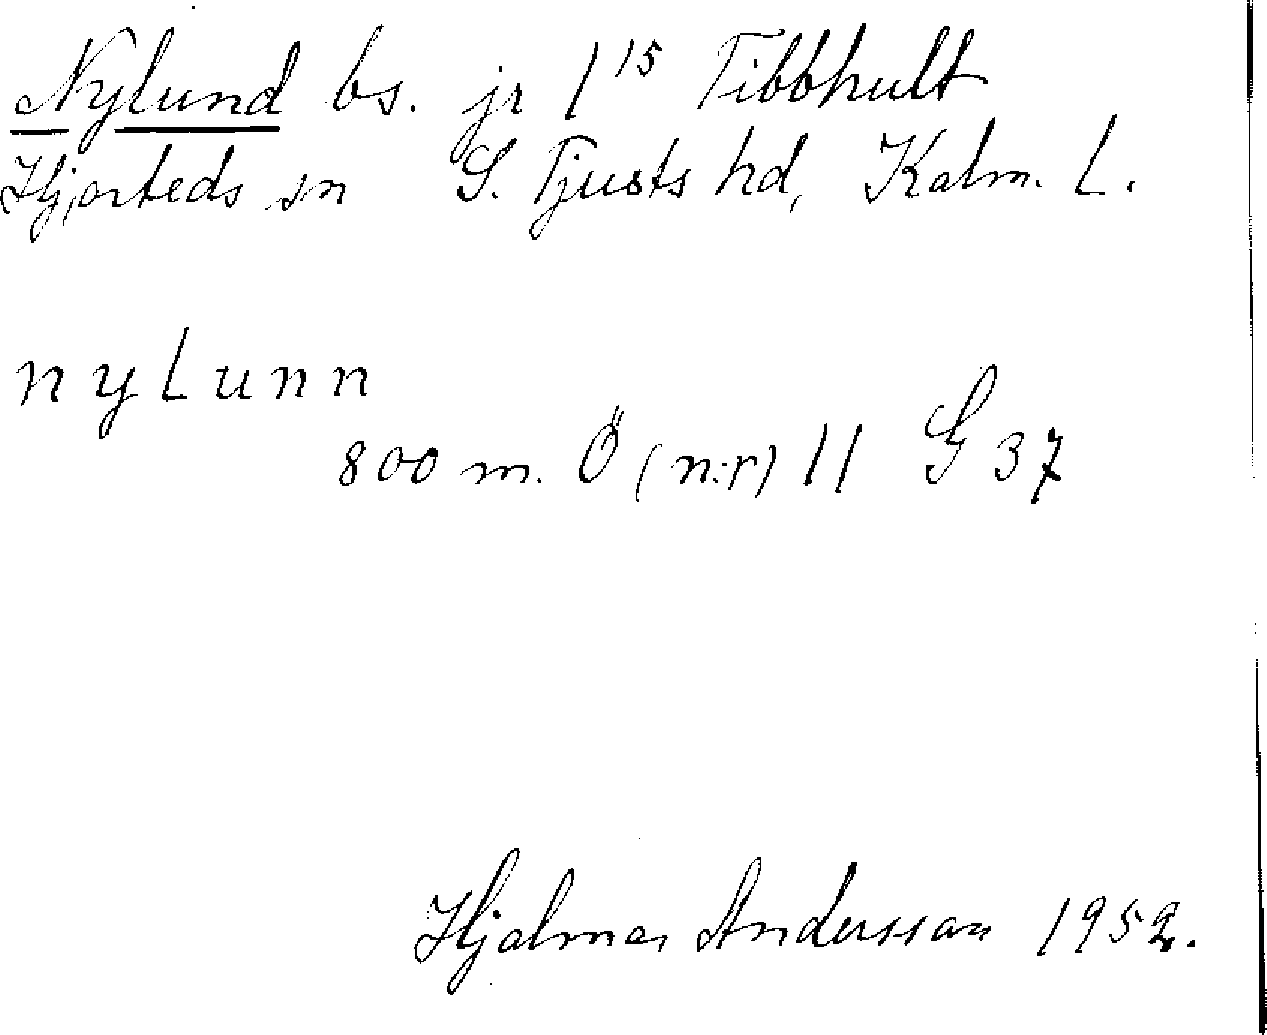 Nylund bs. jr 1¹⁵ Tibbhult
Hjorteds sn S. Tjusts hd, Kalm. L.
nylunn
800 m. Ö (n:r) 11 G 37
Hjalmar Andersson 1952.